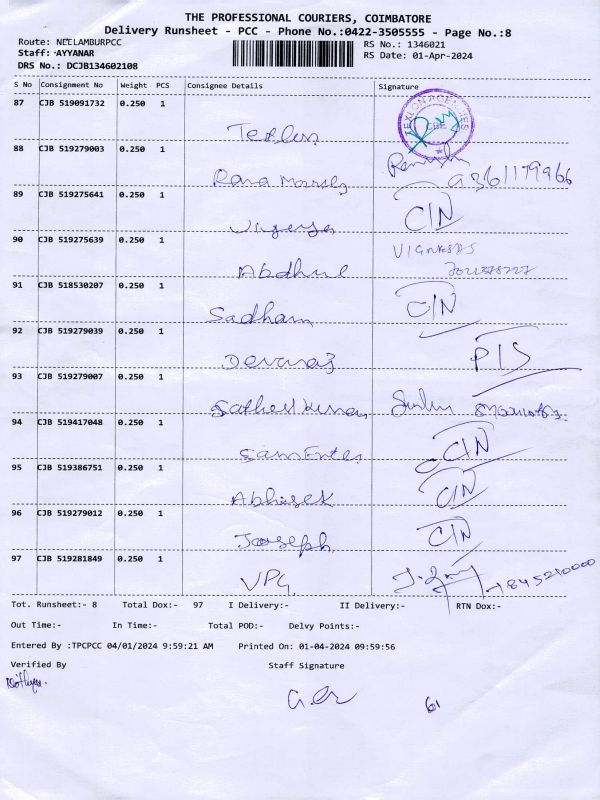 THE PROFESSIONAL COURIERS, COIMBATORE
Delivery Runsheet - PCC - Phone No.:0422-3505555 - Page No.:8
Route: NEELAMBURPCC
RS No.: 1346021
Staff: AYYANAR
RS Date: 01-Apr-2024
DRS No.: DCJB134602108
S No Consignment No Weight PCS Consignee Details Signature
87 CJB 519091732 0.250 1
TEXLON AGENCIES CBE
88 CJB 519279003 0.250 1
89 CJB 519275641 0.250 1
CIN
90 CJB 519275639 0.250 1
Abdhul
91 CJB 518530207 0.250 1
Sadham CIN
92 CJB 519279039 0.250 1
Devaraj PIS
93 CJB 519279007 0.250 1
94 CJB 519417048 0.250 1
CIN
95 CJB 519386751 0.250 1
Abhisek CIN
96 CJB 519279012 0.250 1
Jooseph CIN
97 CJB 519281849 0.250 1
VPG
Tot. Runsheet:- 8 Total Dox:- 97 I Delivery:- II Delivery:- RTN Dox:-
Out Time:- In Time:- Total POD:- Delvy Points:-
Entered By :TPCPCC 04/01/2024 9:59:21 AM Printed On: 01-04-2024 09:59:56
Verified By Staff Signature
61